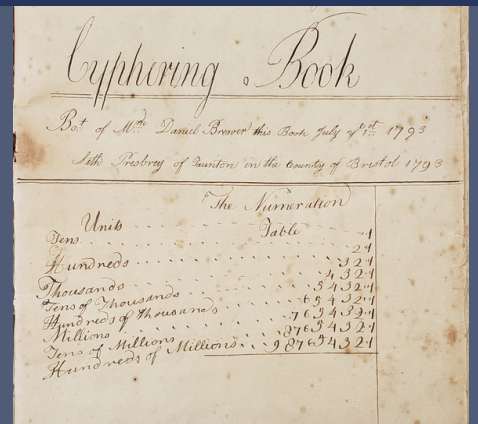 Cyphering Book
Bot of Mr Daniel Brewer this Book July ye 1st 1793
Seth Presbrey of Taunton in the County of Bristol 1793
The Numeration
Table
Units 1
Tens 21
Hundreds 321
Thousands 4321
Tens of Thousands 54321
Hundreds of Thousands 654321
Millions 7654321
Tens of Millions 87654321
Hundreds of Millions 987654321